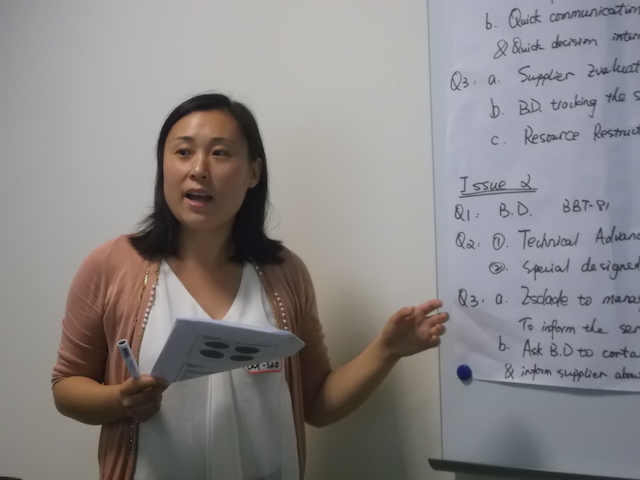 b. Quick communication
& Quick decision
Q3: a. Supplier Evaluat
b. B.D. tracking the s
c. Resource Restruct
Issue 2
Q1: B.D. BBT-81
Q2: ①. Technical Advanc
②. Special designed
Q3: a. Esclade to mana
To inform the ser
b. Ask B.D to conta
& inform supplier abou